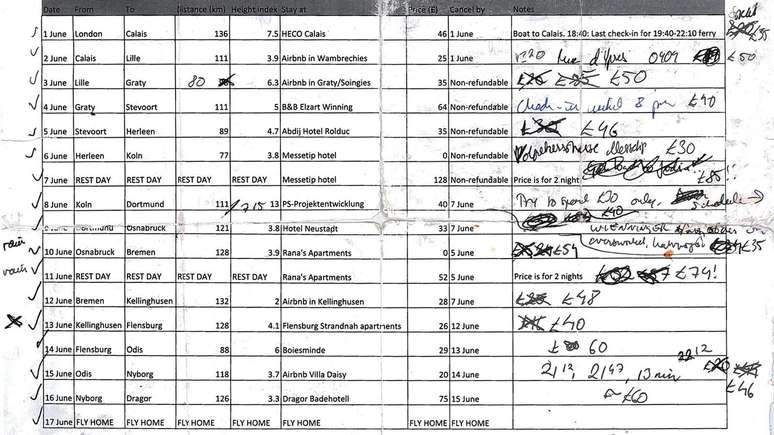 Date From To Distance (km) Height index Stay at Price (£) Cancel by Notes
1 June London Calais 136 7.5 HECO Calais 46 1 June Boat to Calais. 18:40: Last check-in for 19:40-22:10 ferry £35
2 June Calais Lille 111 3.9 Airbnb in Wambrechies 25 1 June £50
3 June Lille Graty 80 6.3 Airbnb in Graty/Soingies 35 Non-refundable £50
4 June Graty Stevoort 111 5 B&B Elzart Winning 64 Non-refundable Check-in until 8 pm £40
5 June Stevoort Herleen 89 4.7 Abdij Hotel Rolduc 35 Non-refundable £46
6 June Herleen Koln 77 3.8 Messetip hotel 0 Non-refundable Messetip £30
7 June REST DAY REST DAY REST DAY REST DAY Messetip hotel 128 Non-refundable Price is for 2 night £85!!
8 June Koln Dortmund 111 13 PS-Projektentwicklung 40 7 June Try to spend £30 only.
£40
9 June Dortmund Osnabruck 121 3.8 Hotel Neustadt 33 7 June
rain 10 June Osnabruck Bremen 128 3.9 Rana's Apartments 0 5 June £54 £35
rain 11 June REST DAY REST DAY REST DAY REST DAY Rana's Apartments 52 5 June Price is for 2 nights £74!
12 June Bremen Kellinghusen 132 2 Airbnb in Kellinghusen 28 7 June £48
13 June Kellinghusen Flensburg 128 4.1 Flensburg Strandnah apartments 26 12 June £40
14 June Flensburg Odis 88 6 Boiesminde 29 13 June £ 60
15 June Odis Nyborg 118 3.7 Airbnb Villa Daisy 20 14 June 21 12, 21 47, 13 min 22 12
£46
16 June Nyborg Dragor 126 3.3 Dragor Badehotell 75 15 June £60
17 June FLY HOME FLY HOME FLY HOME FLY HOME FLY HOME FLY HOME FLY HOME